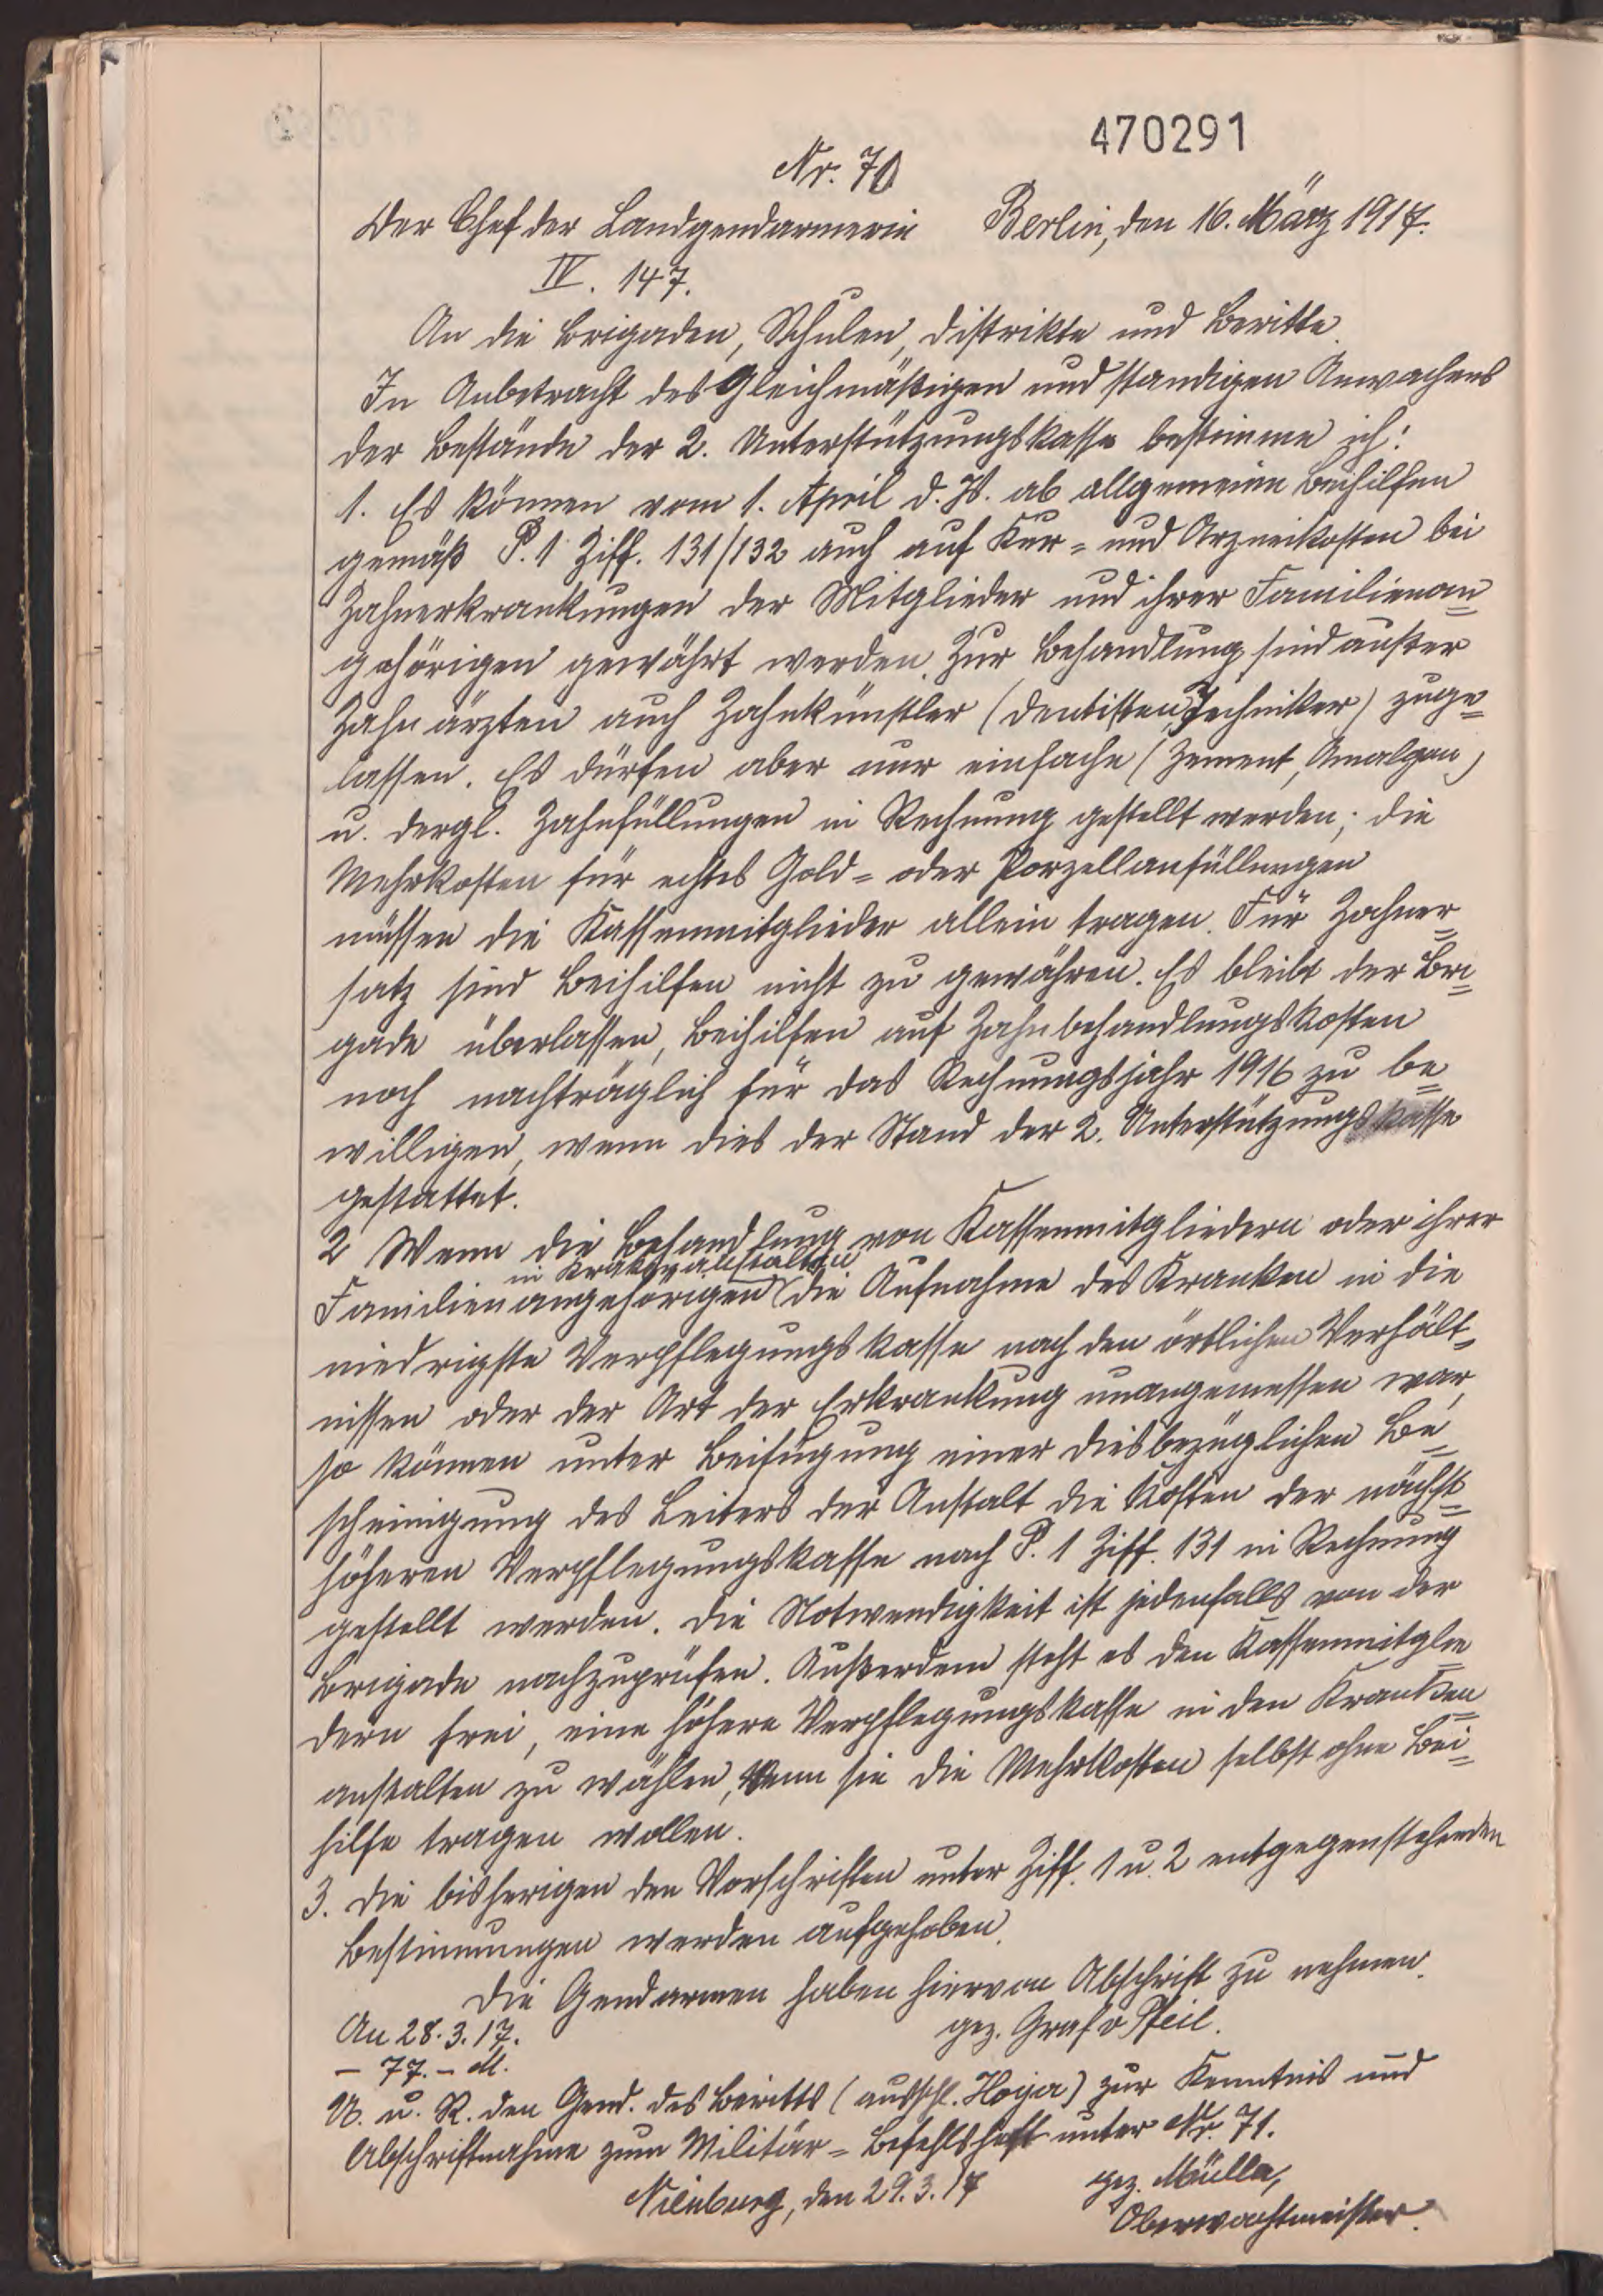 470291
Nr. 71
Der Chef der Landgendarmerie Berlin, den 16. März 1917.
IV. 147.
An die Brigaden, Schulen, Distrikte und Beritte.
In Anbetracht des Gleichmäßigen und standigen Anwachsens
der Bestände der 2. Unterstützungskasse bestimme ich:
1. Es können vom 1. April d. Js. ab allgemeine Beihilfen
gemäß P. 1 Ziff. 131/132 auch auf Kur- und Arzneikosten bei
Zahnerkrankungen der Mitglieder und ihrer Familienan=
gehörigen gewährt werden. Zur Behandlung sind außer
Zahnärzten auch Zahnkünstler (Dentisten, Techniker) zuge=
lassen. Es dürfen aber nur einfache (Zement, Amalgam)
u. dergl. Zahnfüllungen in Rechnung gestellt werden; die
Mehrkosten für echtes Gold- oder Porzellanfüllungen
müssen die Kassenmitglieder allein tragen. Für Zahner=
satz sind Beihilfen nicht zu gewähren. Es bleibt der Bri=
gade überlassen, Beihilfen auf Zahnbehandlungskosten
noch nachträglich für das Rechnungsjahr 1916 zu be=
willigen, wenn dies der Stand der 2. Unterstützungskasse
gestattet.
2 Wenn die Behandlung von Kassenmitgliedern oder ihrer
in Krankenanstalten
Familienangehörigen die Aufnahme des Kranken in die
niedrigste Verpflegungskasse nach den örtlichen Verhält=
nissen oder der Art der Erkrankung unangemessen war,
so können unter Beifügung einer diesbezüglichen Be=
scheinigung des Leiters der Anstalt die Kosten der nächst=
höheren Verpflegungskasse nach P. 1 Ziff. 131 in Rechnung
gestellt werden. Die Notwendigkeit ist jedenfalls von der
Brigade nachzuprüfen. Außerdem steht es den Kassenmitglie=
dern frei, eine höhere Verpflegungskasse in den Kranken=
anstalten zu wählen, wenn sie die Mehrkosten selbst ohne Bei=
hilfe tragen wollen.
3. Die bisherigen den Vorschriften unter Ziff. 1 u. 2 entgegenstehenden
Bestimmungen werden aufgehoben.
Die Gendarmen haben hiervon Abschrift zu nehmen.
An 28.3.17. gez. Graf v Pfeil.
- 77. - M.
U. u. R. den Gend. des Beritts (ausschl. Hoya) zur Kenntnis und
Abschriftnahme zum Militär-Befehlsheft unter Nr. 71.
Nienburg, den 29.3.17 gez. Müller,
Oberwachtmeister.